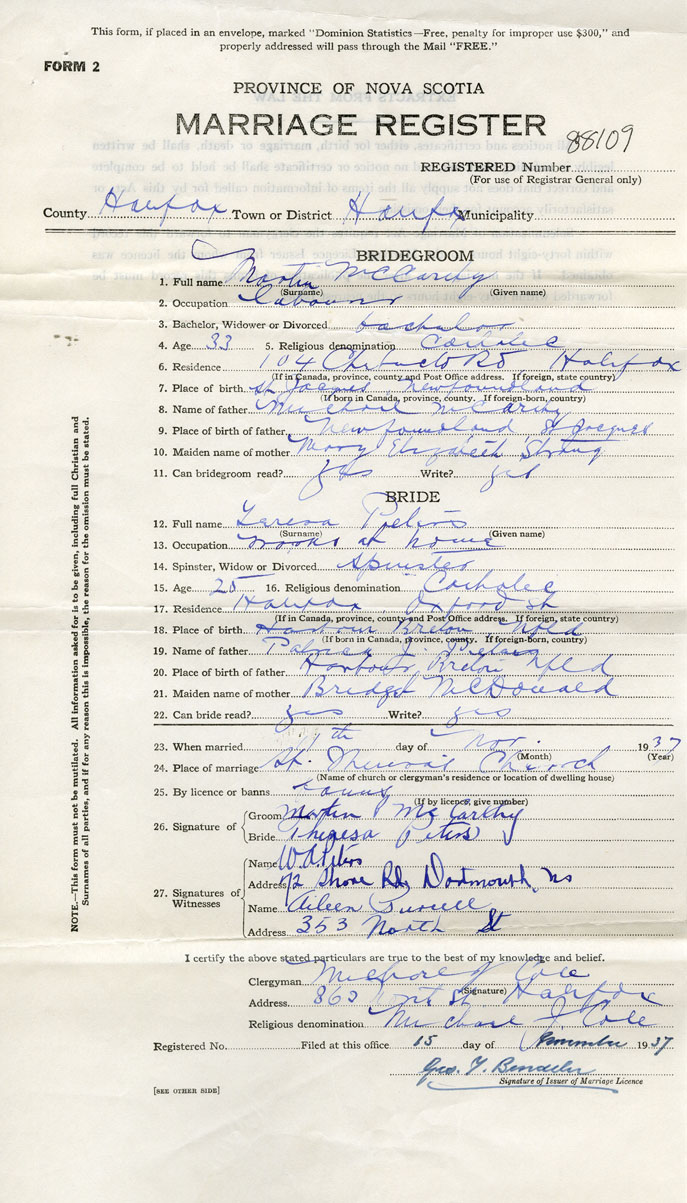 This form, if placed in an envelope, marked "Dominion Statistics—Free, penalty for improper use $300," and
properly addressed will pass through the Mail "FREE."
FORM 2
PROVINCE OF NOVA SCOTIA
MARRIAGE REGISTER
88109
REGISTERED Number
(For use of Registrar General only)
County Halifax Town or District Halifax Municipality
BRIDEGROOM
1. Full name Martin McCarthy
(Surname) (Given name)
2. Occupation Labourer
3. Bachelor, Widower or Divorced bachelor
4. Age 33 5. Religious denomination Catholic
6. Residence 104 Chebucto Rd Halifax
(If in Canada, province, county and Post Office address. If foreign, state country)
7. Place of birth St Jacques, Newfoundland
(If born in Canada, province, county. If foreign-born, country)
8. Name of father Michael McCarthy
9. Place of birth of father Newfoundland St Jacques
10. Maiden name of mother Mary Elizabeth Strang
11. Can bridegroom read? yes Write? yes
BRIDE
12. Full name Teresa Peters
(Surname) (Given name)
13. Occupation works at home
14. Spinster, Widow or Divorced Spinster
15. Age 25 16. Religious denomination Catholic
17. Residence Halifax, Oxford St
(If in Canada, province, county and Post Office address. If foreign, state country)
18. Place of birth Harbour Breton Nfld
(If born in Canada, province, county. If foreign-born, country)
19. Name of father Patrick J.
20. Place of birth of father Harbour Breton Nfld
21. Maiden name of mother Bridget McDonald
22. Can bride read? yes Write? yes
23. When married th day of Nov. 1937
(Month) (Year)
24. Place of marriage St. Church
(Name of church or clergyman's residence or location of dwelling house)
25. By licence or banns
(If by licence, give number)
26. Signature of Groom Martin McCarthy
Bride Theresa Peters
27. Signatures of Witnesses
Name W. A. Peters
Address 72 Shore Rd, Dartmouth, NS
Name Aileen Pursell
Address 353 North St
I certify the above stated particulars are true to the best of my knowledge and belief.
Clergyman Michael J Cole
(Signature)
Address 862 St Halifax
Religious denomination Michael J Cole
Registered No. Filed at this office 15 day of November 1937
Geo. T.
Signature of Issuer of Marriage Licence
[SEE OTHER SIDE]
NOTE.—This form must not be mutilated. All information asked for is to be given, including full Christian and
Surnames of all parties, and if for any reason this is impossible, the reason for the omission must be stated.